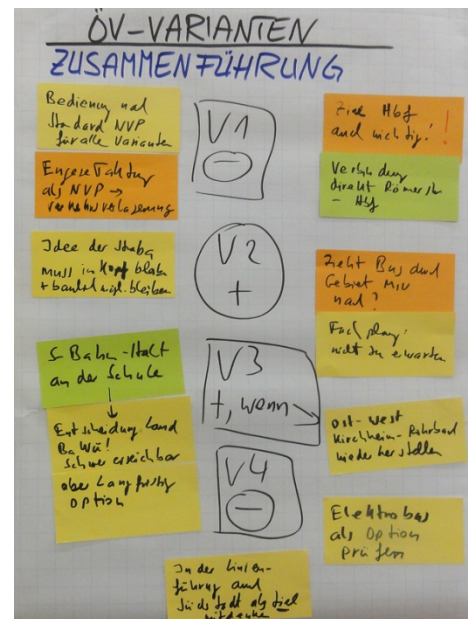 ÖV-VARIANTEN
ZUSAMMENFÜHRUNG
Bedienung nach
Standard NVP
für alle Varianten
Engere Taktung
als NVP →
Verkehrsverlagerung
Idee der Straba
muss im Kopf bleiben
+ baulich mögl. bleiben
S-Bahn-Halt
an der Schule
Entscheidung Land
BaWü!
Schwer erreichbar
aber langfristig
OPTION
V1
-
V2
+
V3
+, wenn →
V4
-
Ziel Hbf
auch wichtig!
Verbindung
direkt Römerstr.
- Hbf
Zieht Bus durch
Gebiet MIV
nach?
Fachplanung:
nicht zu erwarten
Ost-West
Kirchheim-Rohrbach
wiederherstellen
Elektrobus
als OPTION
prüfen
In der Linien-
führung auch
Südstadt als Ziel
mitdenken